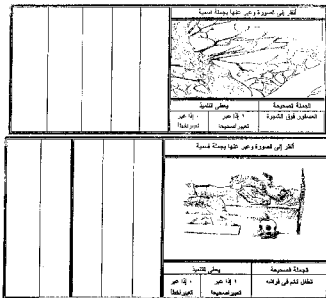 أنظر إلى الصورة وعبر عنها بجملة اسمية
الجملة الصحيحة
يعطى للتلميذ
العصفور فوق الشجرة
1 إذا عبر تعبيرا صحيحا
0 إذا عبر تعبيرا خطأ
أنظر إلى الصورة وعبر عنها بجملة اسمية
الجملة الصحيحة
يعطى للتلميذ
الطفل نائم في فراشه
1 إذا عبر تعبيرا صحيحا
0 إذا عبر تعبيرا خطأ